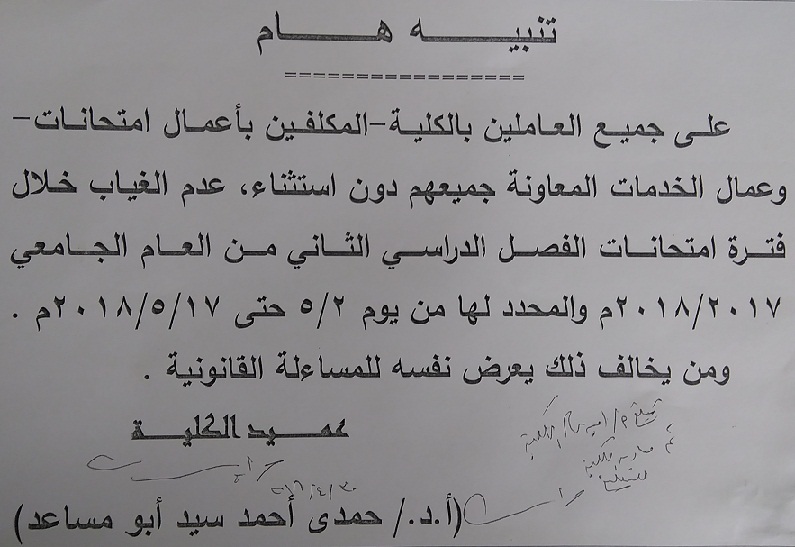 تنبيه هام
على جميع العاملين بالكلية-المكلفين بأعمال امتحانات-
وعمال الخدمات المعاونة جميعهم دون استثناء، عدم الغياب خلال
فترة امتحانات الفصل الدراسي الثاني من العام الجامعي
٢٠١٨/٢٠١٧م والمحدد لها من يوم ٥/٢ حتى ٢٠١٨/٥/١٧م .
ومن يخالف ذلك يعرض نفسه للمساءلة القانونية .
عميد الكلية
(أ.د./ حمدى أحمد سيد أبو مساعد)